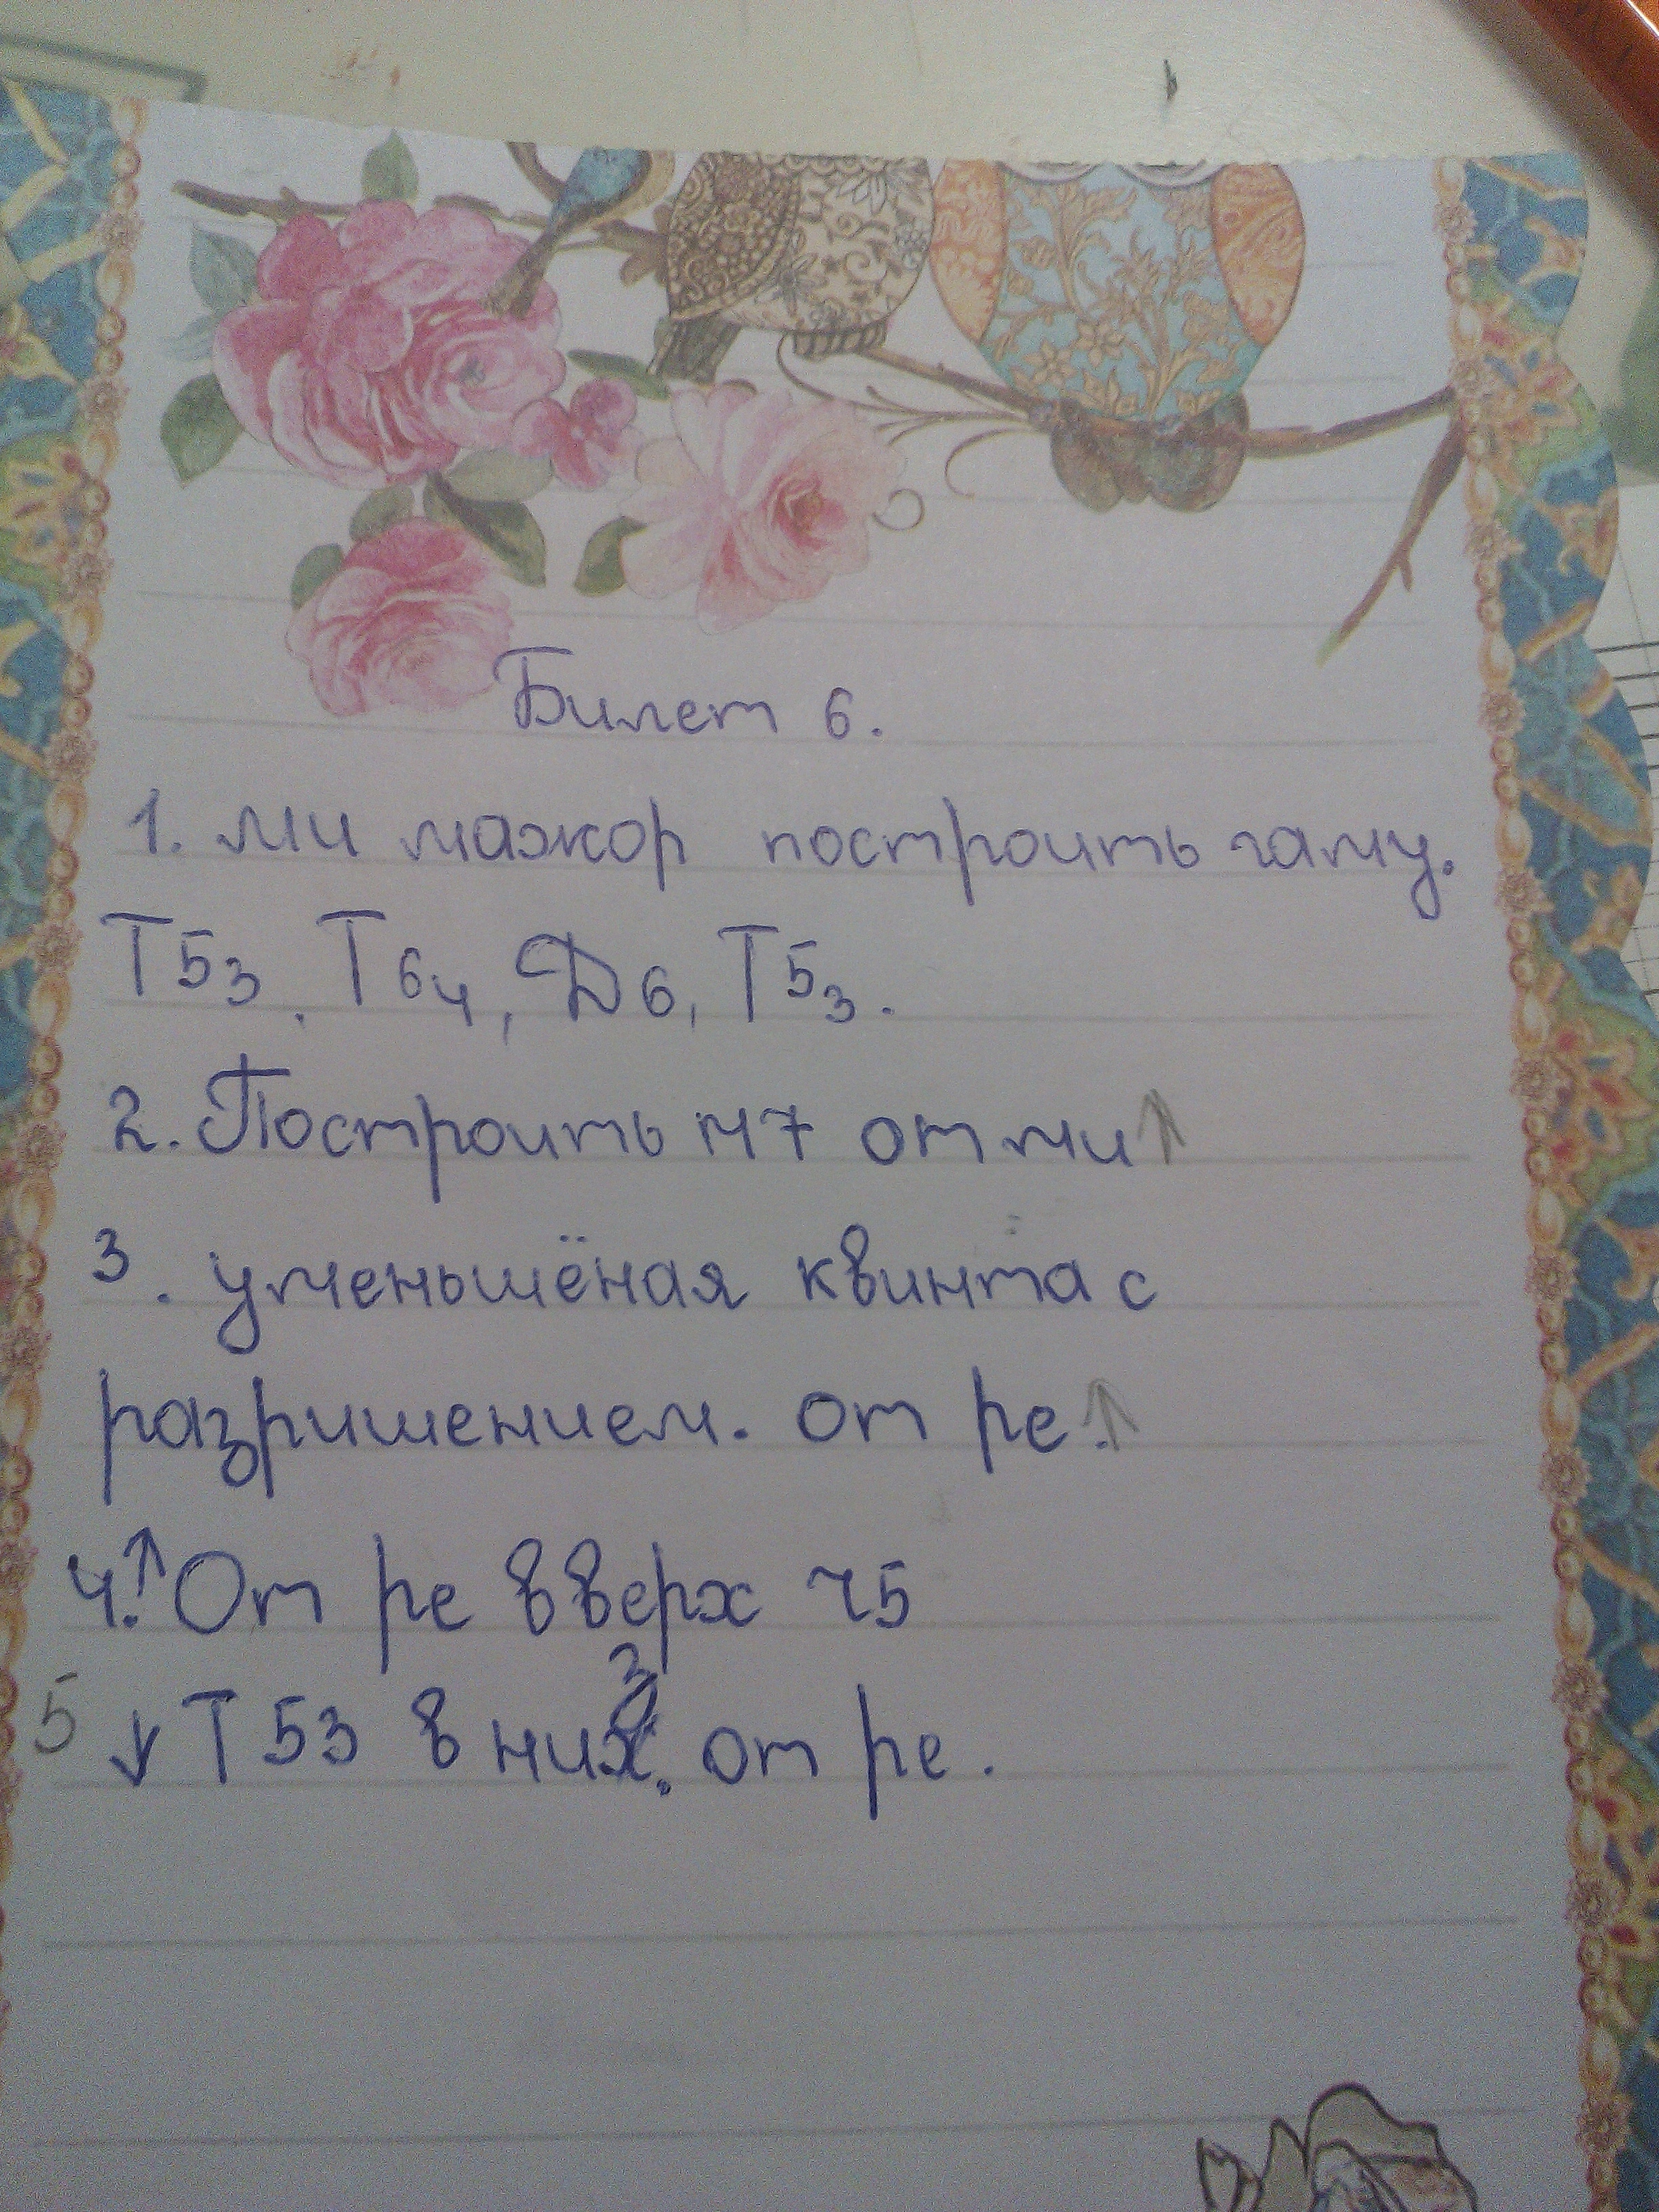 Билет 6.
1. ми мажор построить гаму.
Т53, Т64, Д6, Т53.
2. Построить м7 от ми↑
3. уменьшёная квинта с
разришением. от ре.↑
4.↑ От ре вверх ч5
5 ↓ Т53 в низ. от ре.